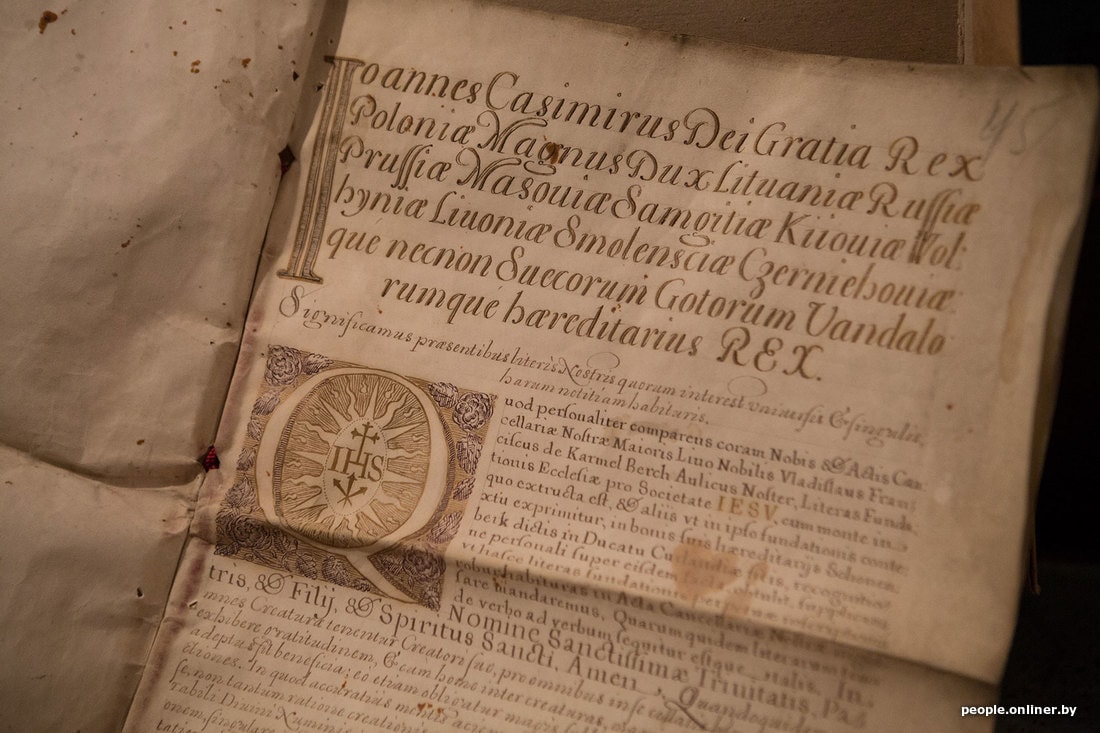 45
Ioannes Casimirus Dei Gratia Rex
Poloniæ Magnus Dux Lituaniæ Russiæ
Prussiæ Masouiæ Samgitiæ Kiiouiæ Wol:
hyniæ Liuoniæ Smolensciæ Czerniehouiæ:
que necnon Suecorum Gotorum Vandalo
rumque hæreditarius REX.
Significamus præsentibus literis Nostris quorum interest vniuersis & singulis,
harum notitiam habituris.
IHS
Quod personaliter comparens coram Nobis & Actis Can
cellariæ Nostræ Maioris Liuo Nobilis Vladislaus Fran
ciscus de Karmel Berch Aulicus Noster, Literas Funda
tionis Ecclesiæ pro Societate IESV, cum monte in
quo extructa est, & aliis vt in ipso fundationis conte
xtu exprimitur, in bonis suis hæreditarijs Schonen
berk dictis in Ducatu
ne personali super eisdem
vt hasce literas fundationis
in Acta Cancellariæ
sare mandaremus, Quarum quidem literarum
de verbo ad verbum sequitur estque talis. In
Nomine Sanctissimæ Trinitatis, Pa
tris, & Filij, & Spiritus Sancti, Amen, Quandoquidem
omnes Creaturæ tenentur Creatori suo, pro omnibus in se
exhibere gratitudinem, & eam homo inter creaturas,
adeptus sit beneficia; eo etiam obligatur magis
ctiones. In quod accuratius mentis
se, non tantum ratione creationis
rabili Diuini Numinis
onem, singular
people.onliner.by